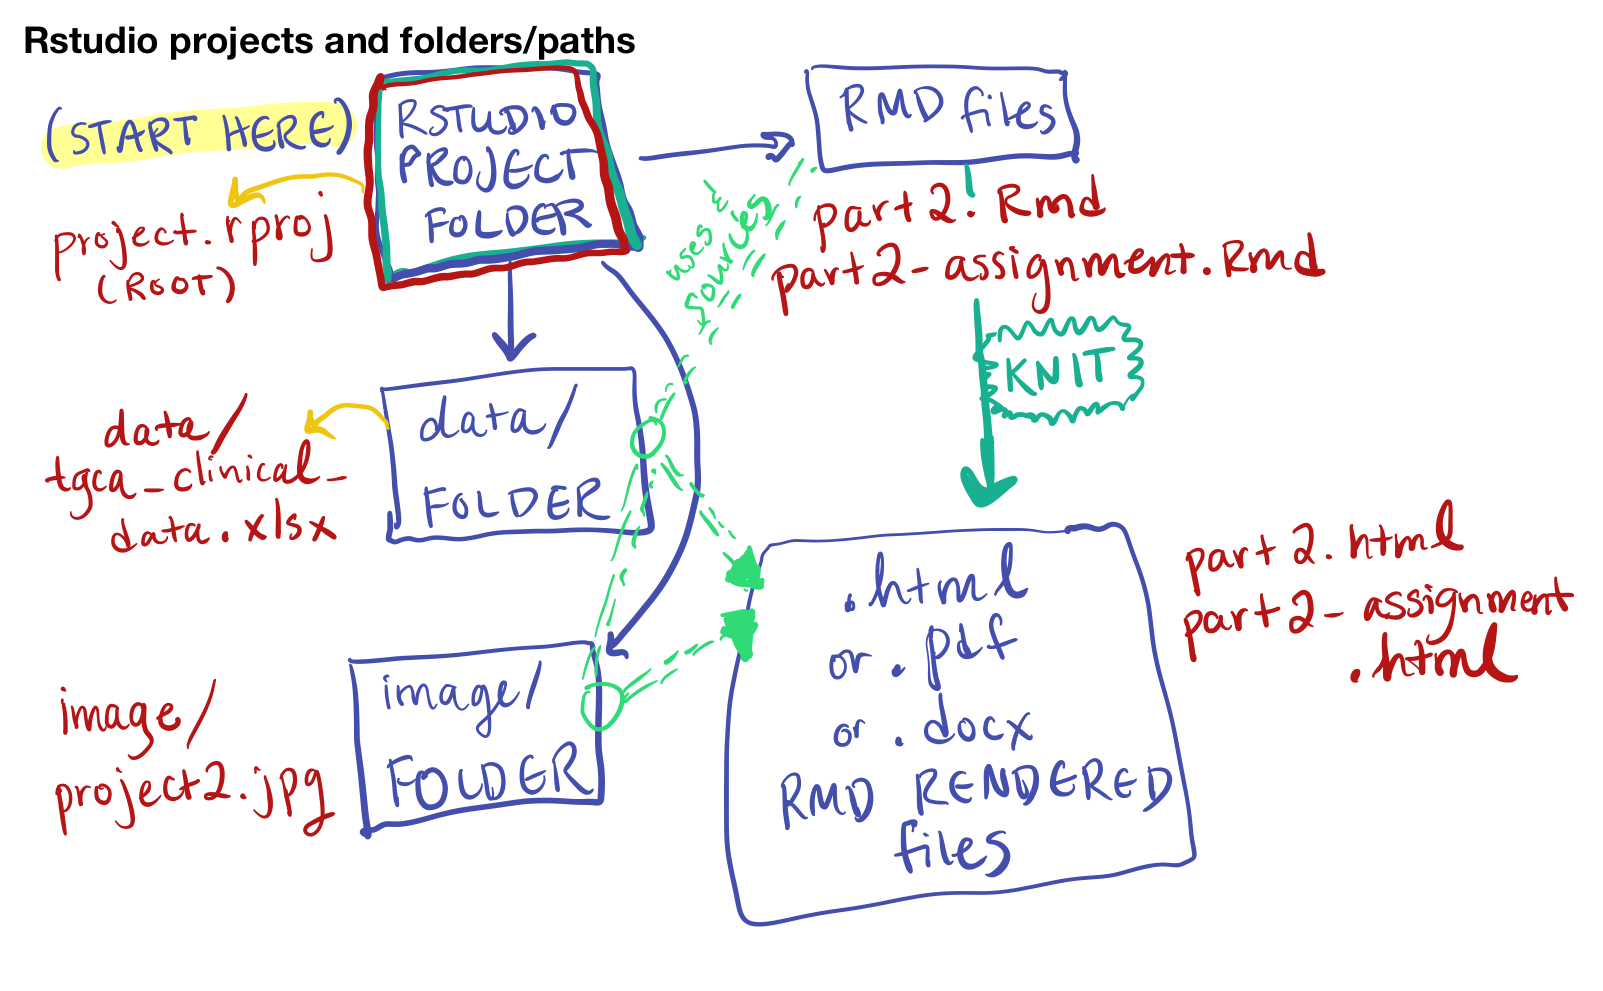 Rstudio projects and folders/paths
(START HERE)
RSTUDIO
PROJECT
FOLDER
project.rproj
(ROOT)
RMD files
part2.Rmd
part2-assignment.Rmd
uses
&
sources
KNIT
data/
FOLDER
data/
tgca_clinical_
data.xlsx
image/
FOLDER
image/
project2.jpg
.html
or .pdf
or .docx
RMD RENDERED
files
part2.html
part2-assignment
.html